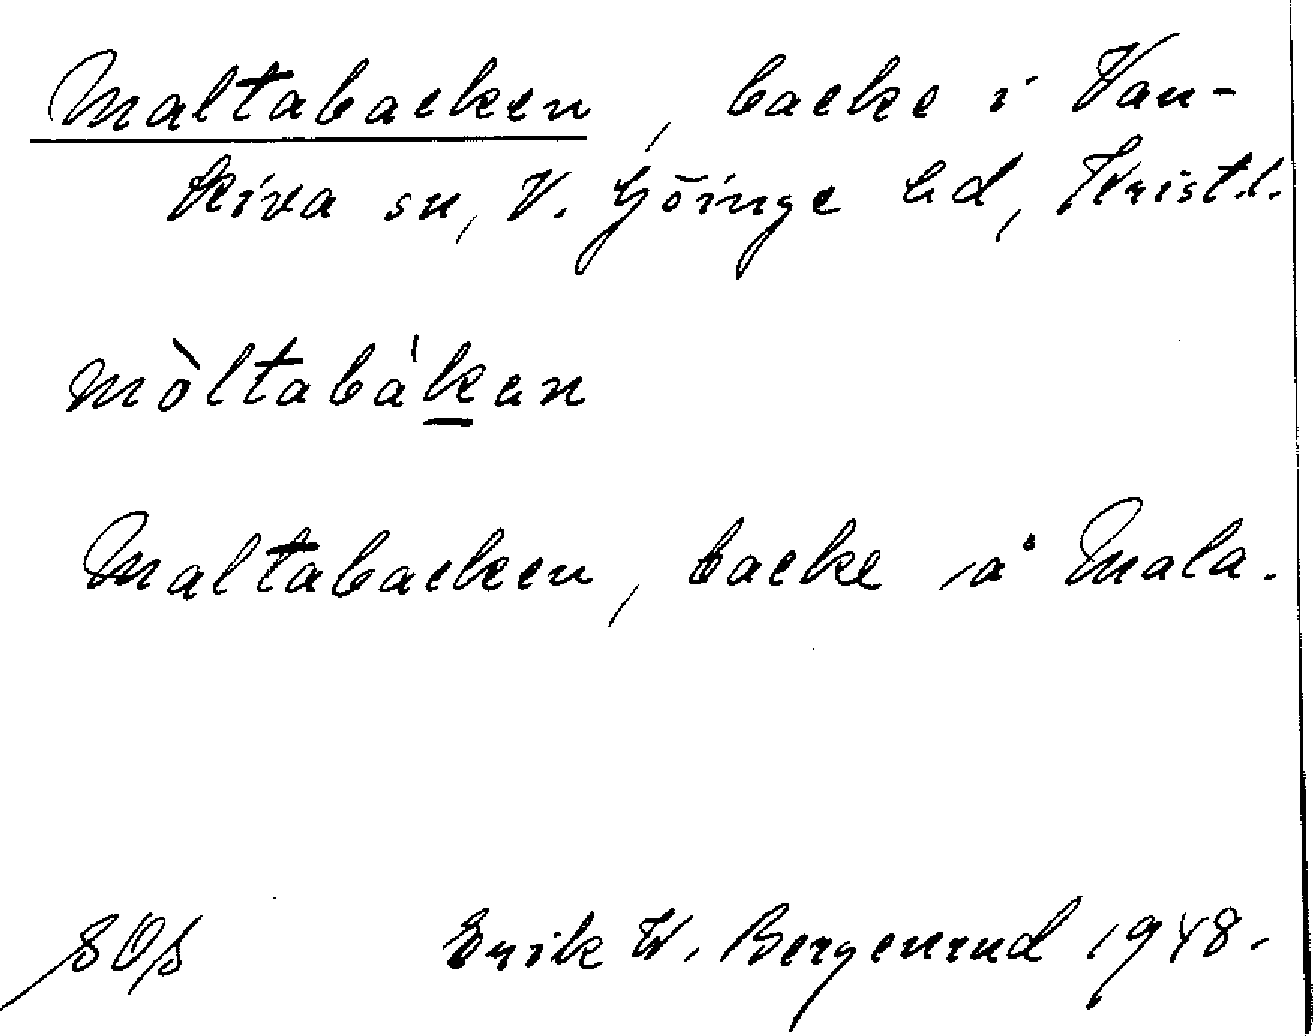 Maltabacken, backe i Van-
kiva sn, V. Göinge hd, Kristl.
mòltabá'kan
Maltabacken, backe å Mala.
Erik W. Bergenrud 1948.